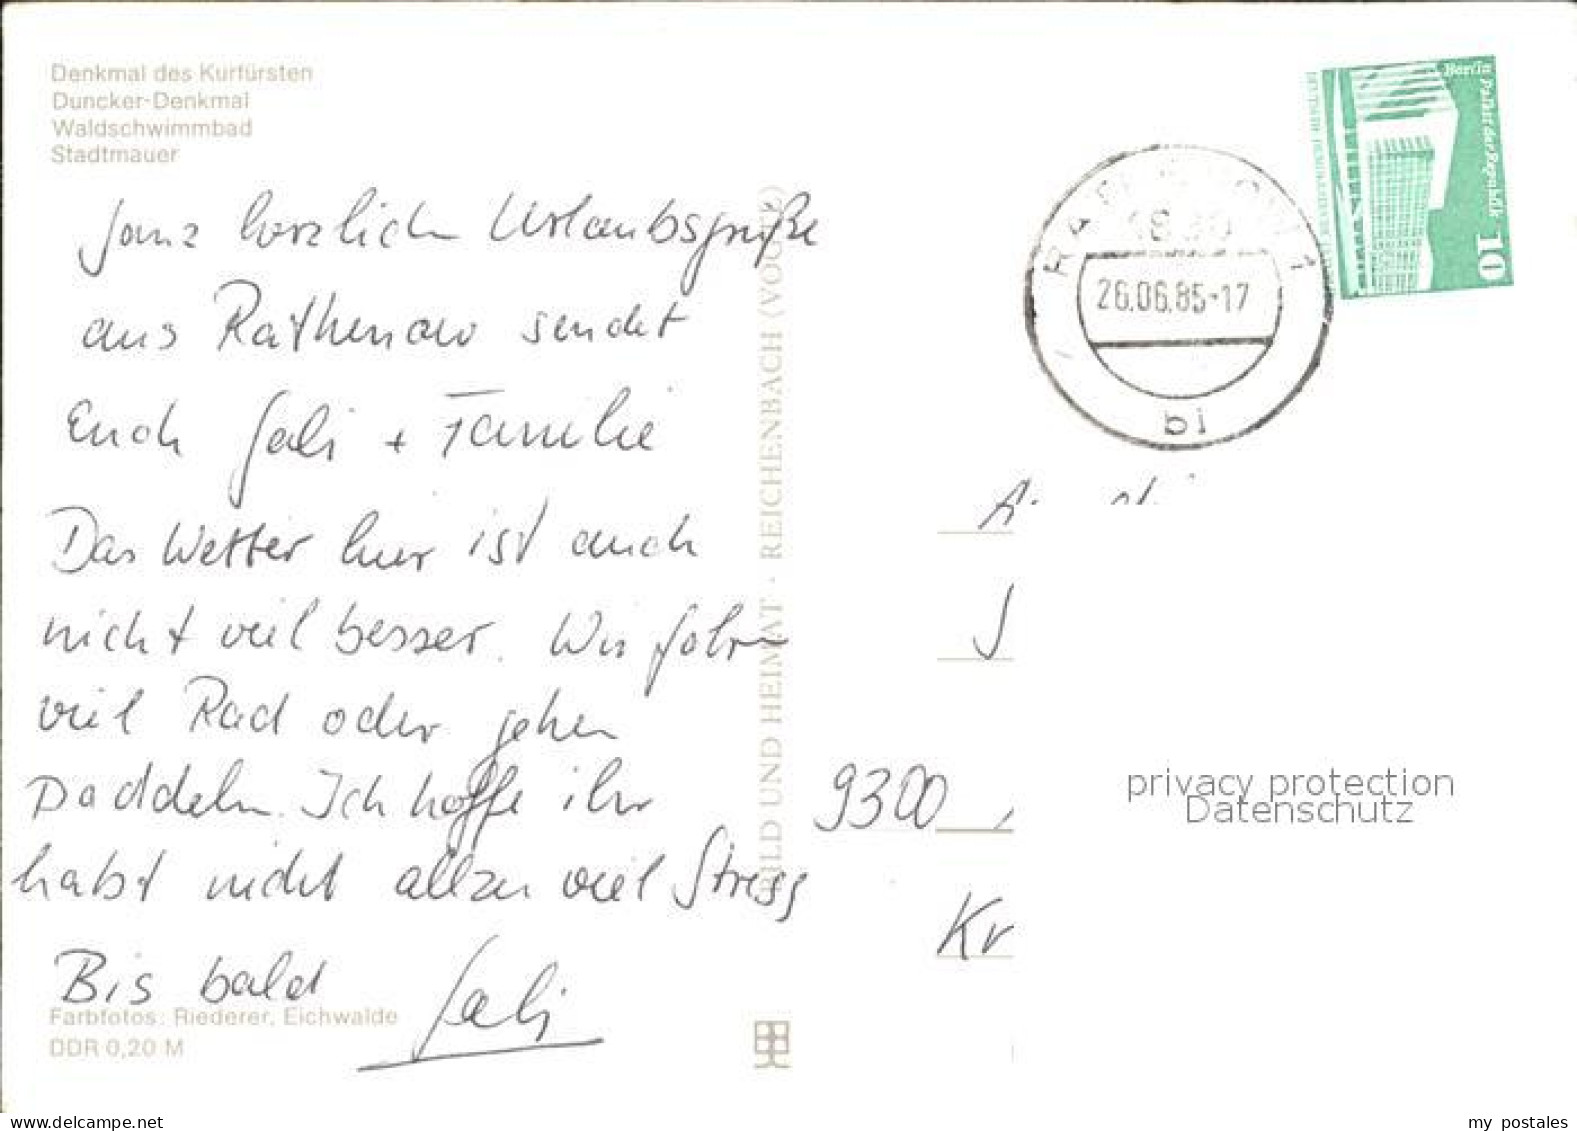 Denkmal des Kurfürsten
Duncker-Denkmal
Waldschwimmbad
Stadtmauer
Ganz herzlich Urlaubsgrüße
aus Rathenow sendet
Euch Gabi + Familie
Das Wetter hier ist auch
nicht viel besser. Wir fahren
viel Rad oder gehen
Paddeln. Ich hoffe ihr
habt nicht allzu viel Stress
Bis bald Gabi
Farbfotos: Riederer, Eichwalde
DDR 0,20 M
BILD UND HEIMAT · REICHENBACH (VOGTL)
Berlin Palast der Republik
10
RATHENOW 1
1830
26.06.85-17
bi
9300
Kr
privacy protection
Datenschutz
my postales